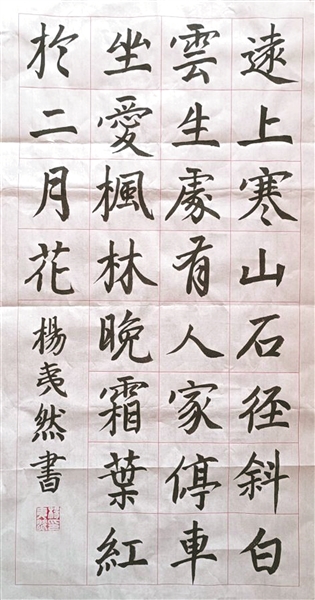 遠上寒山石徑斜白
雲生處有人家停車
坐愛楓林晚霜葉紅
於二月花
楊夷然書